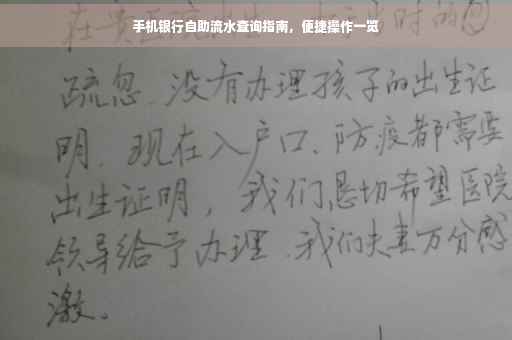 手机银行自助流水查询指南，便捷操作一览
在贵医院出生 时的
疏忽、没有办理孩子的出生证
明、现在入户口、防疫都需要
出生证明，我们恳切希望医院
领导给予办理、我们夫妻万分感
激。